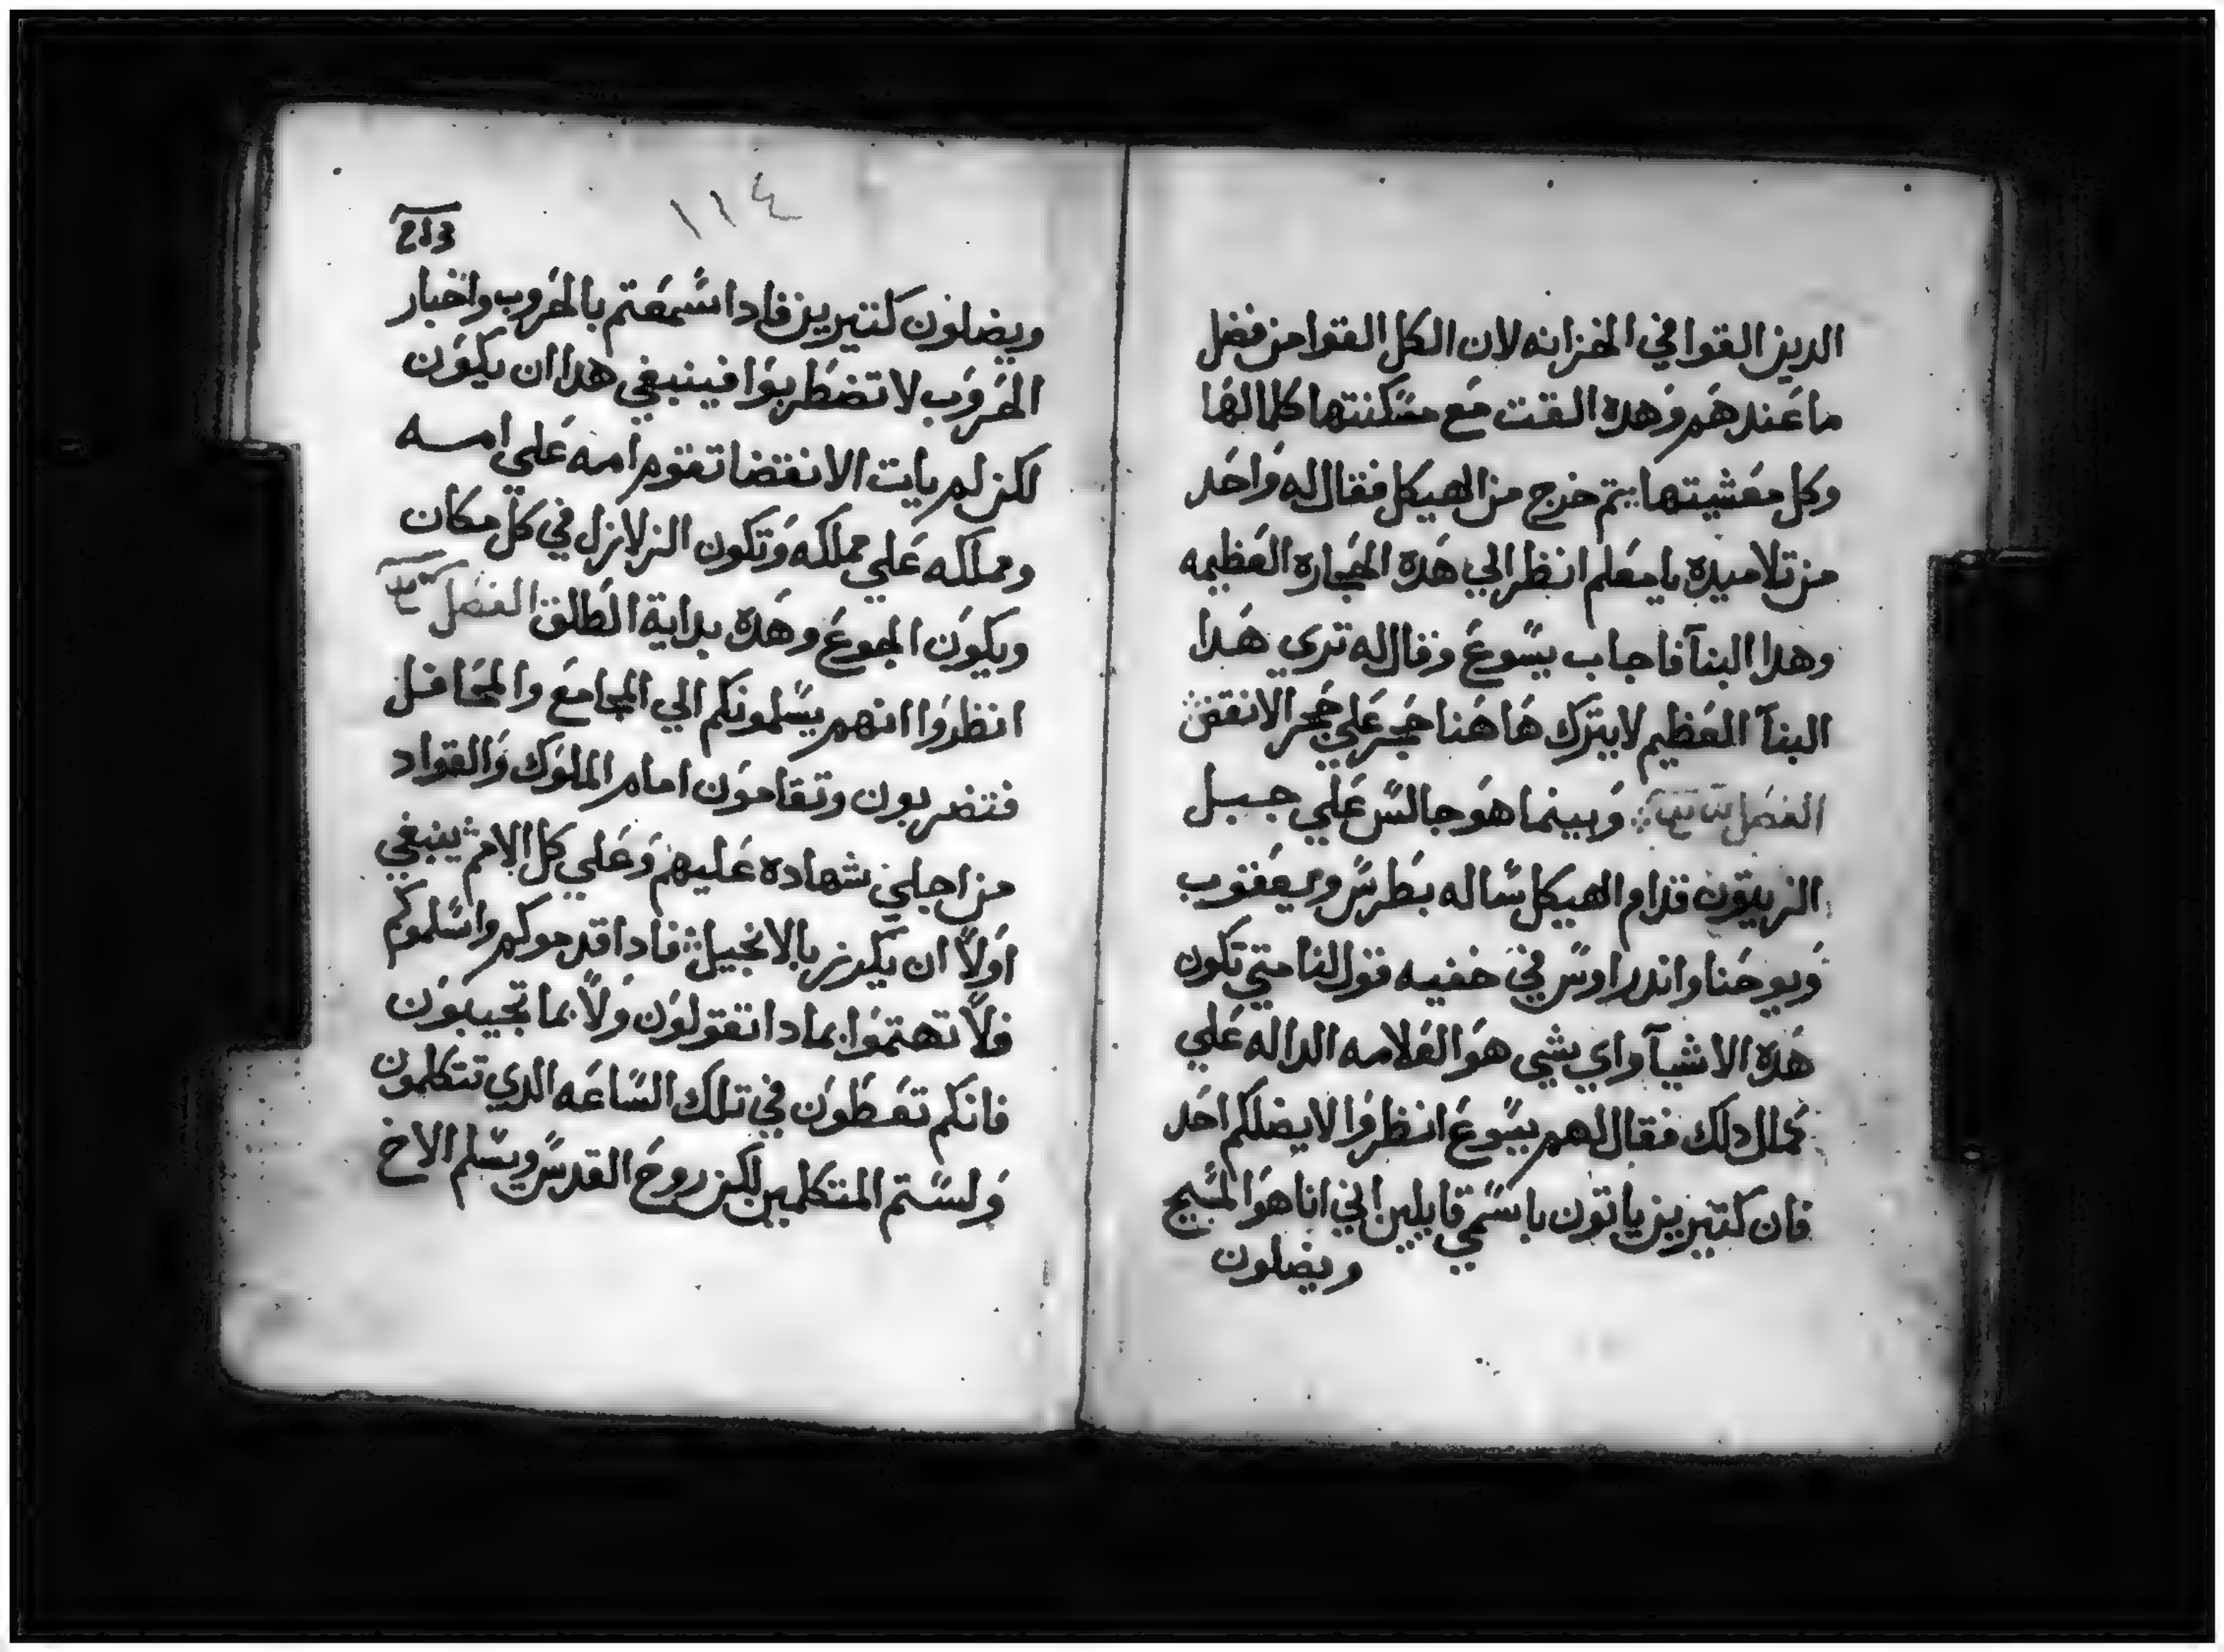 الدين القوا في الخزانه لان الكل القوا من فضل
ما عندهم وهده القت مع مسكنتها كلما لها
وكل معشيتها يتم خرج من الهيكل فقال له واحد
من تلاميده يا معلم انظر الي هده الحجاره العظيمه
وهدا البنآ فاجاب يسوع وقال له تري هدا
البنآ العظيم لا يترك هاهنا حجر علي حجر الا نقض
الفصل وبينما هو جالس علي جبل
الزيتون قدام الهيكل ساله بطرس ويعقوب
ويوحنا واندراوس في خفيه قول لنا متي تكون
هده الاشيآ واي شي هو العلامه الداله علي
كمال دلك فقال لهم يسوع انظروا لا يضلكم احد
فان كتيرين ياتون باسمي قايلين اني انا هو المسيح
ويضلون
١١٤
ويضلون كتيرين فادا سمعتم بالحروب واخبار
الحروب لا تضطربوا فينبغي هدا ان يكون
لكن لم يات الانقضا تقوم امه علي امه
ومملكه علي مملكه وتكون الزلازل في كل مكان
ويكون الجوع وهده بداية الطلق الفصل
انظروا انهم يسلمونكم الي المجامع والمحافل
فتضربون وتقامون امام الملوك والقواد
من اجلي شهاده عليهم وعلي كل الامم ينبغي
اولاً ان يكرز بالانجيل فادا قدموكم واسلموكم
فلا تهتموا بمادا تقولون ولا بما تجيبون
فانكم تعطون في تلك الساعه الدي تتكلمون
ولستم المتكلمين لكن روح القدس ويسلم الاخ